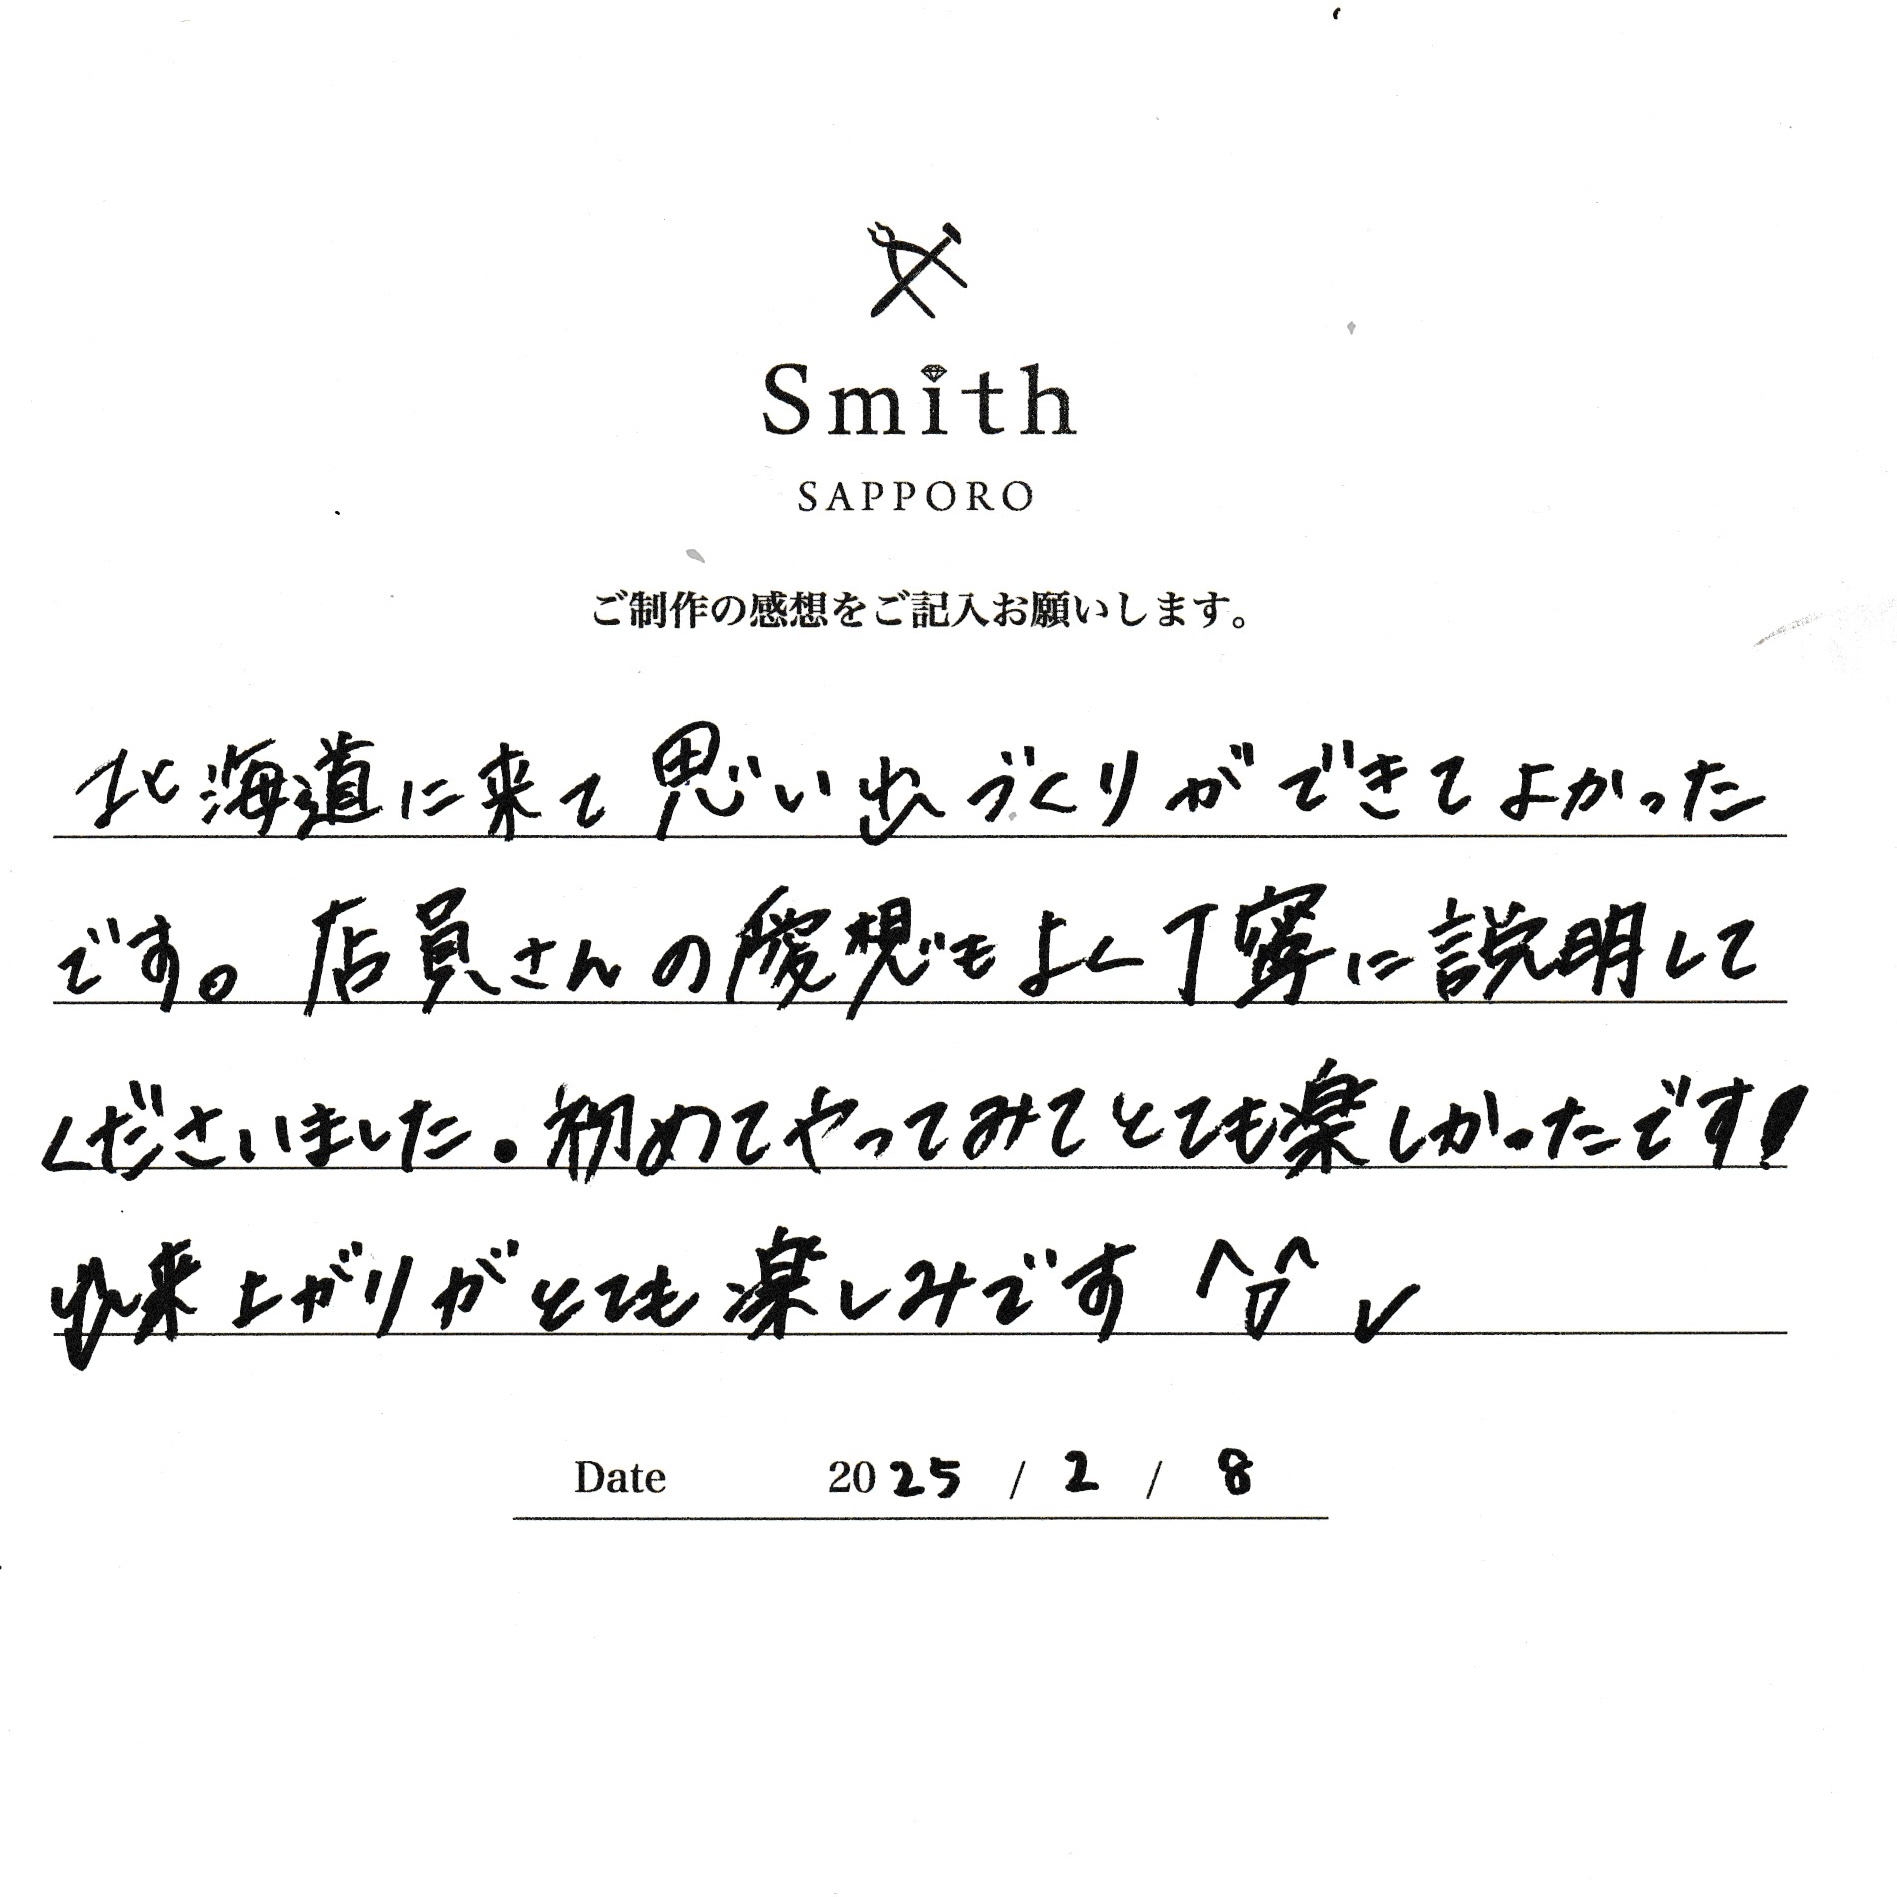 Smith
SAPPORO
ご制作の感想をご記入お願いします。
北海道に来て思い出づくりができてよかった
です。店員さんの愛想もよく丁寧に説明して
くださいました。初めてやってみてとても楽しかったです!
出来上がりがとても楽しみです ^▽^ ✓
Date 2025 / 2 / 8